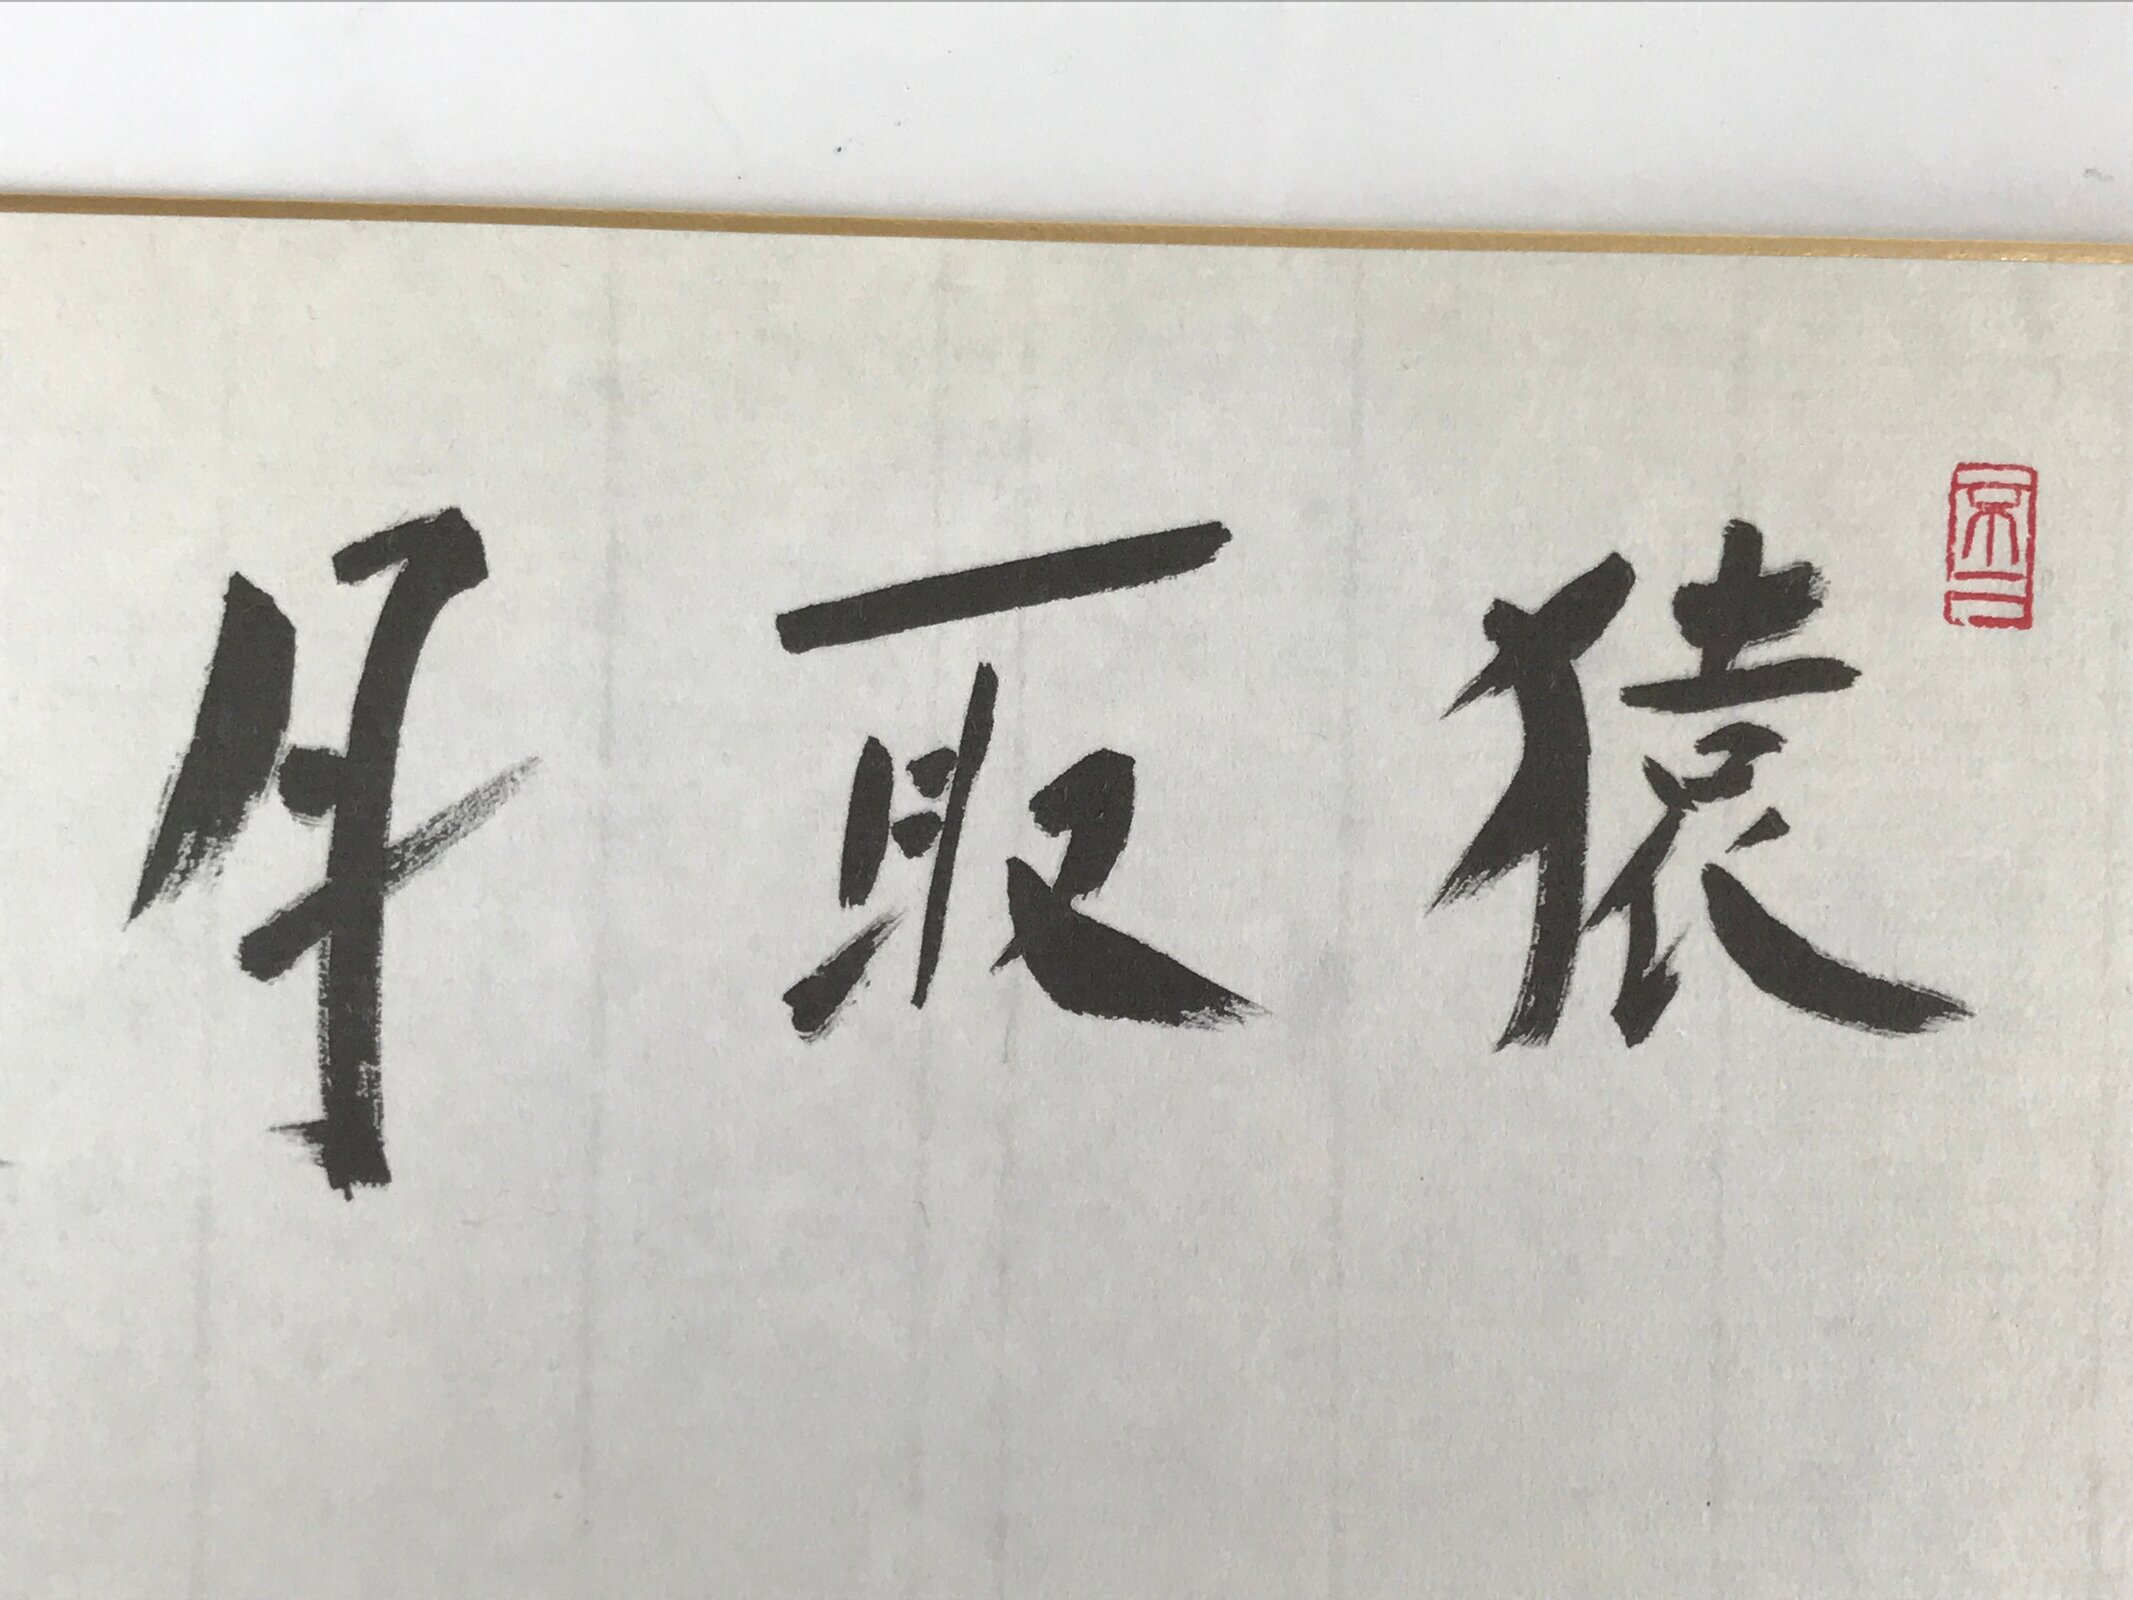 猿取月